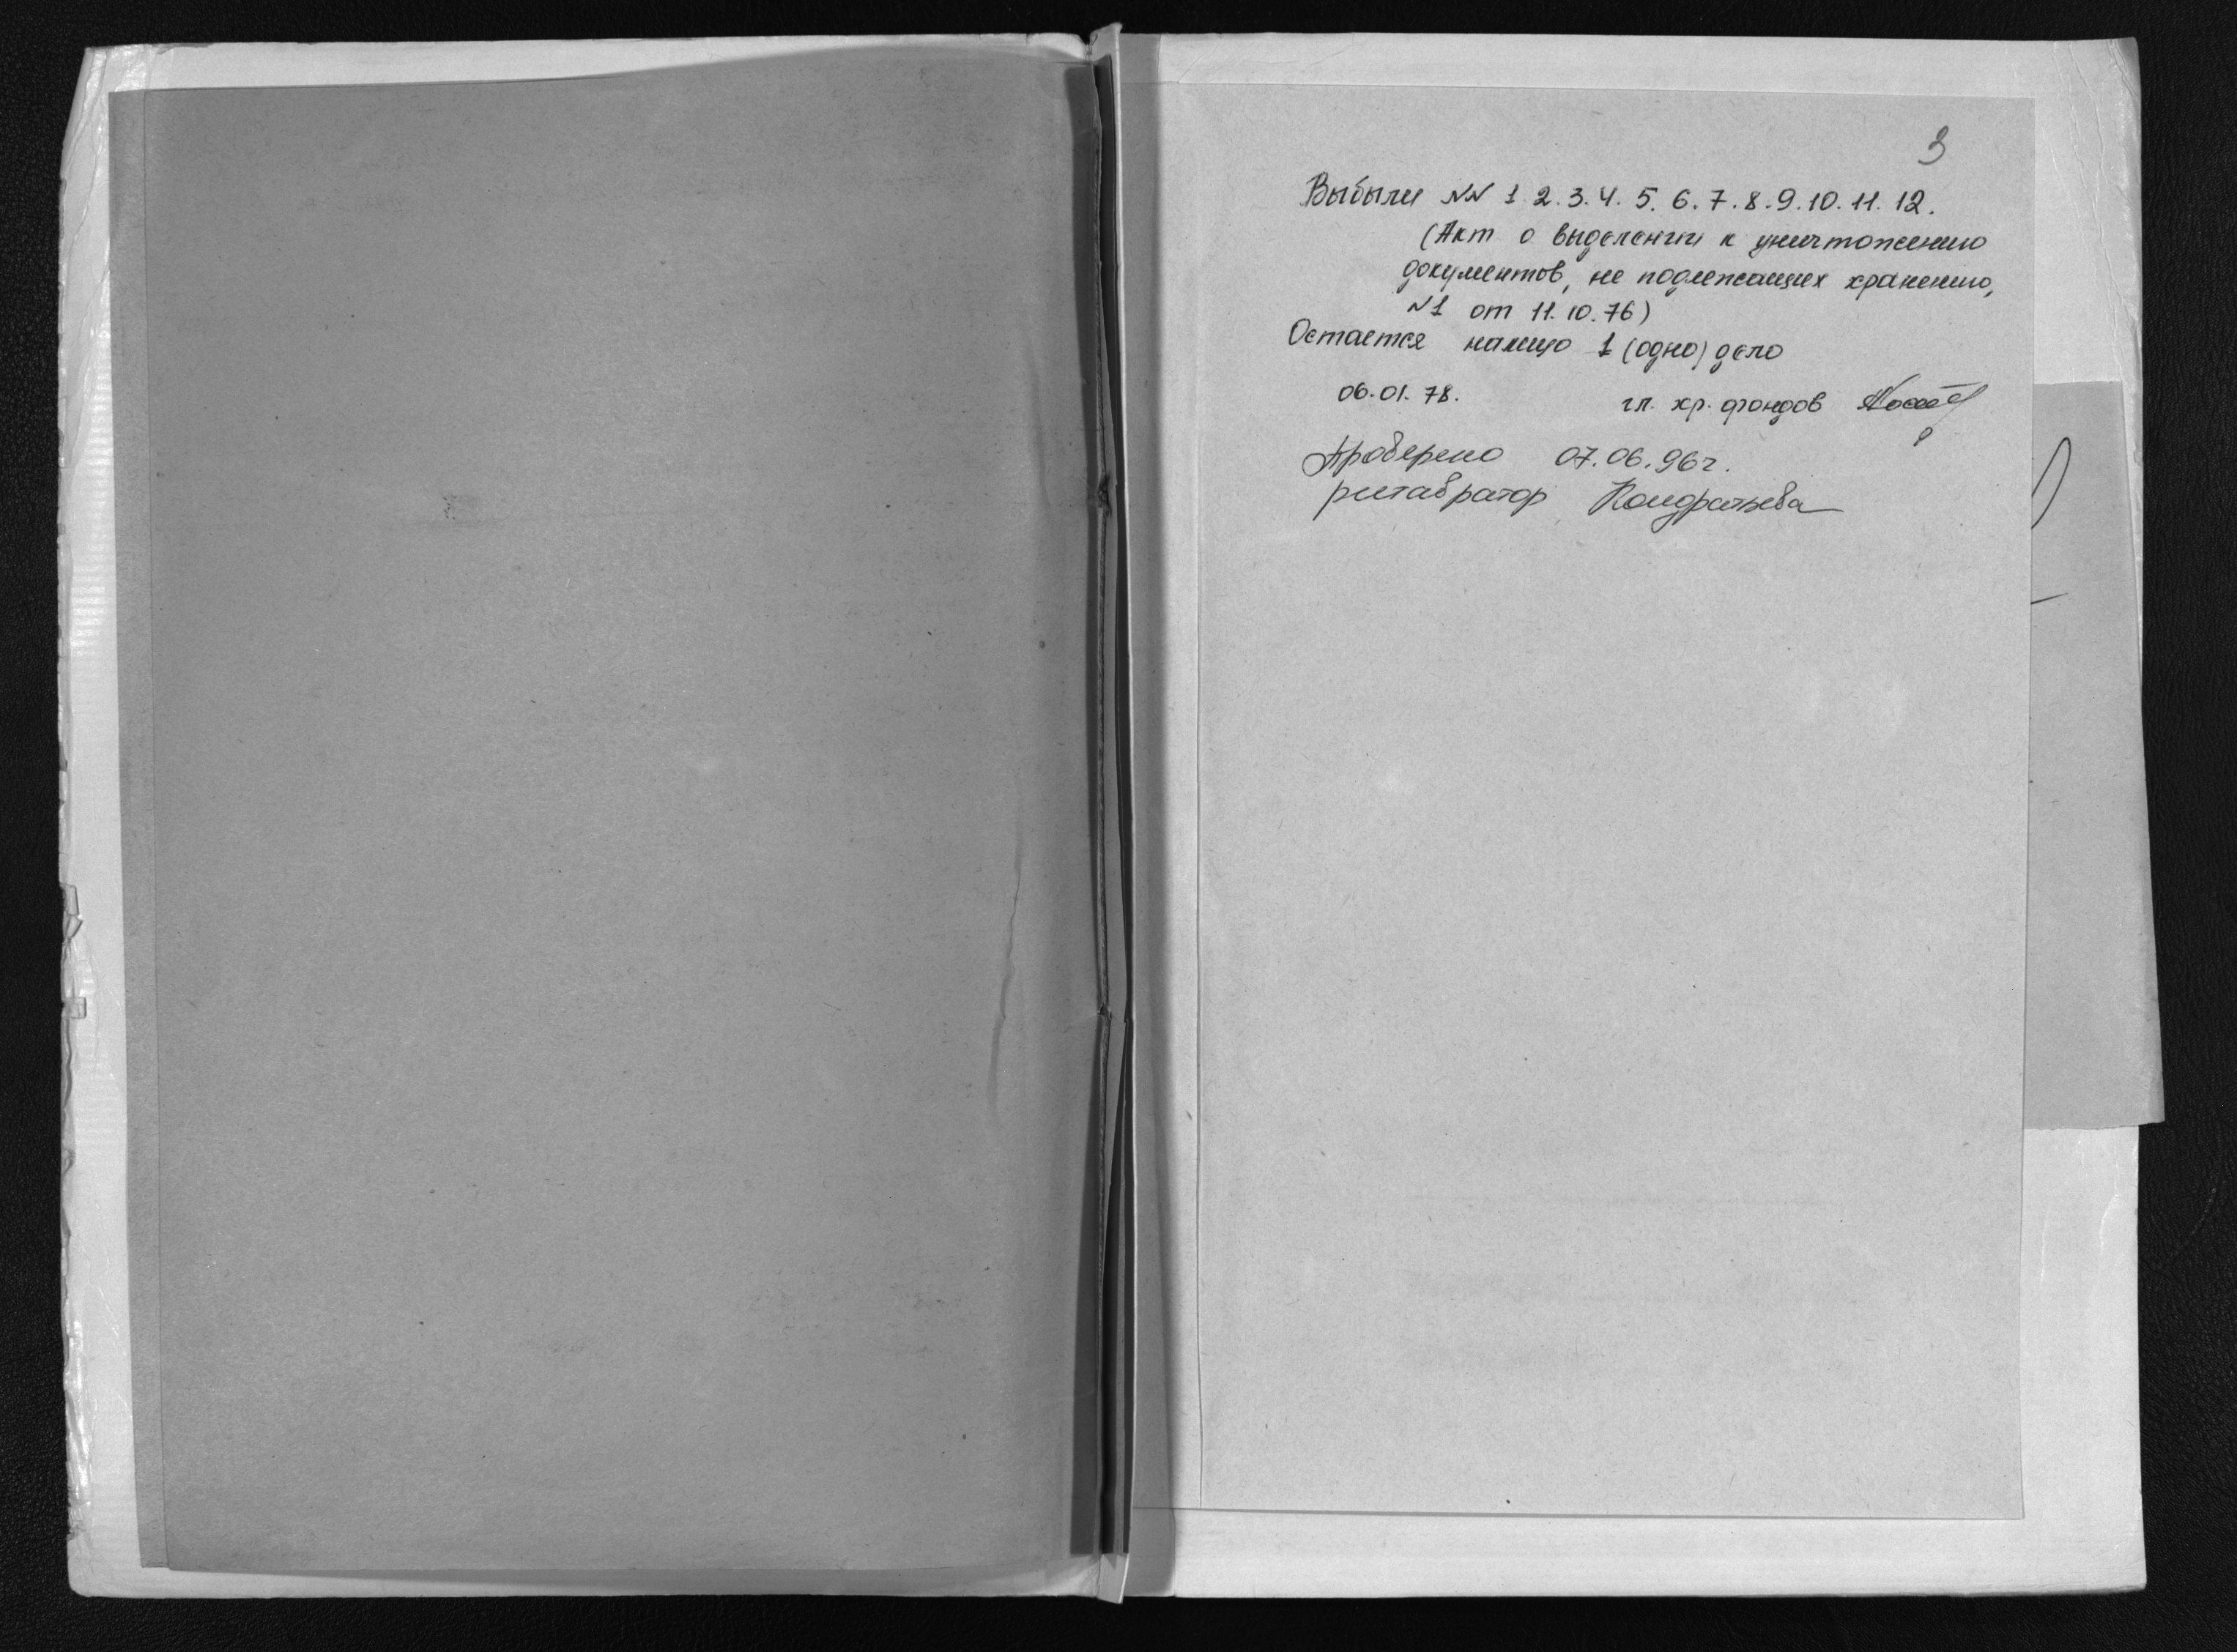 3
Выбыли NN 1. 2. 3. 4. 5. 6. 7. 8. 9. 10. 11. 12.
(Акт о выделении к уничтожению
документов, не подлежащих хранению,
N1 от 11.10.76)
Остается налицо 1 (одно) дело
06.01.78. гл. хр. фондов
Проверено 07.06.96г.
реставратор Кондратьева